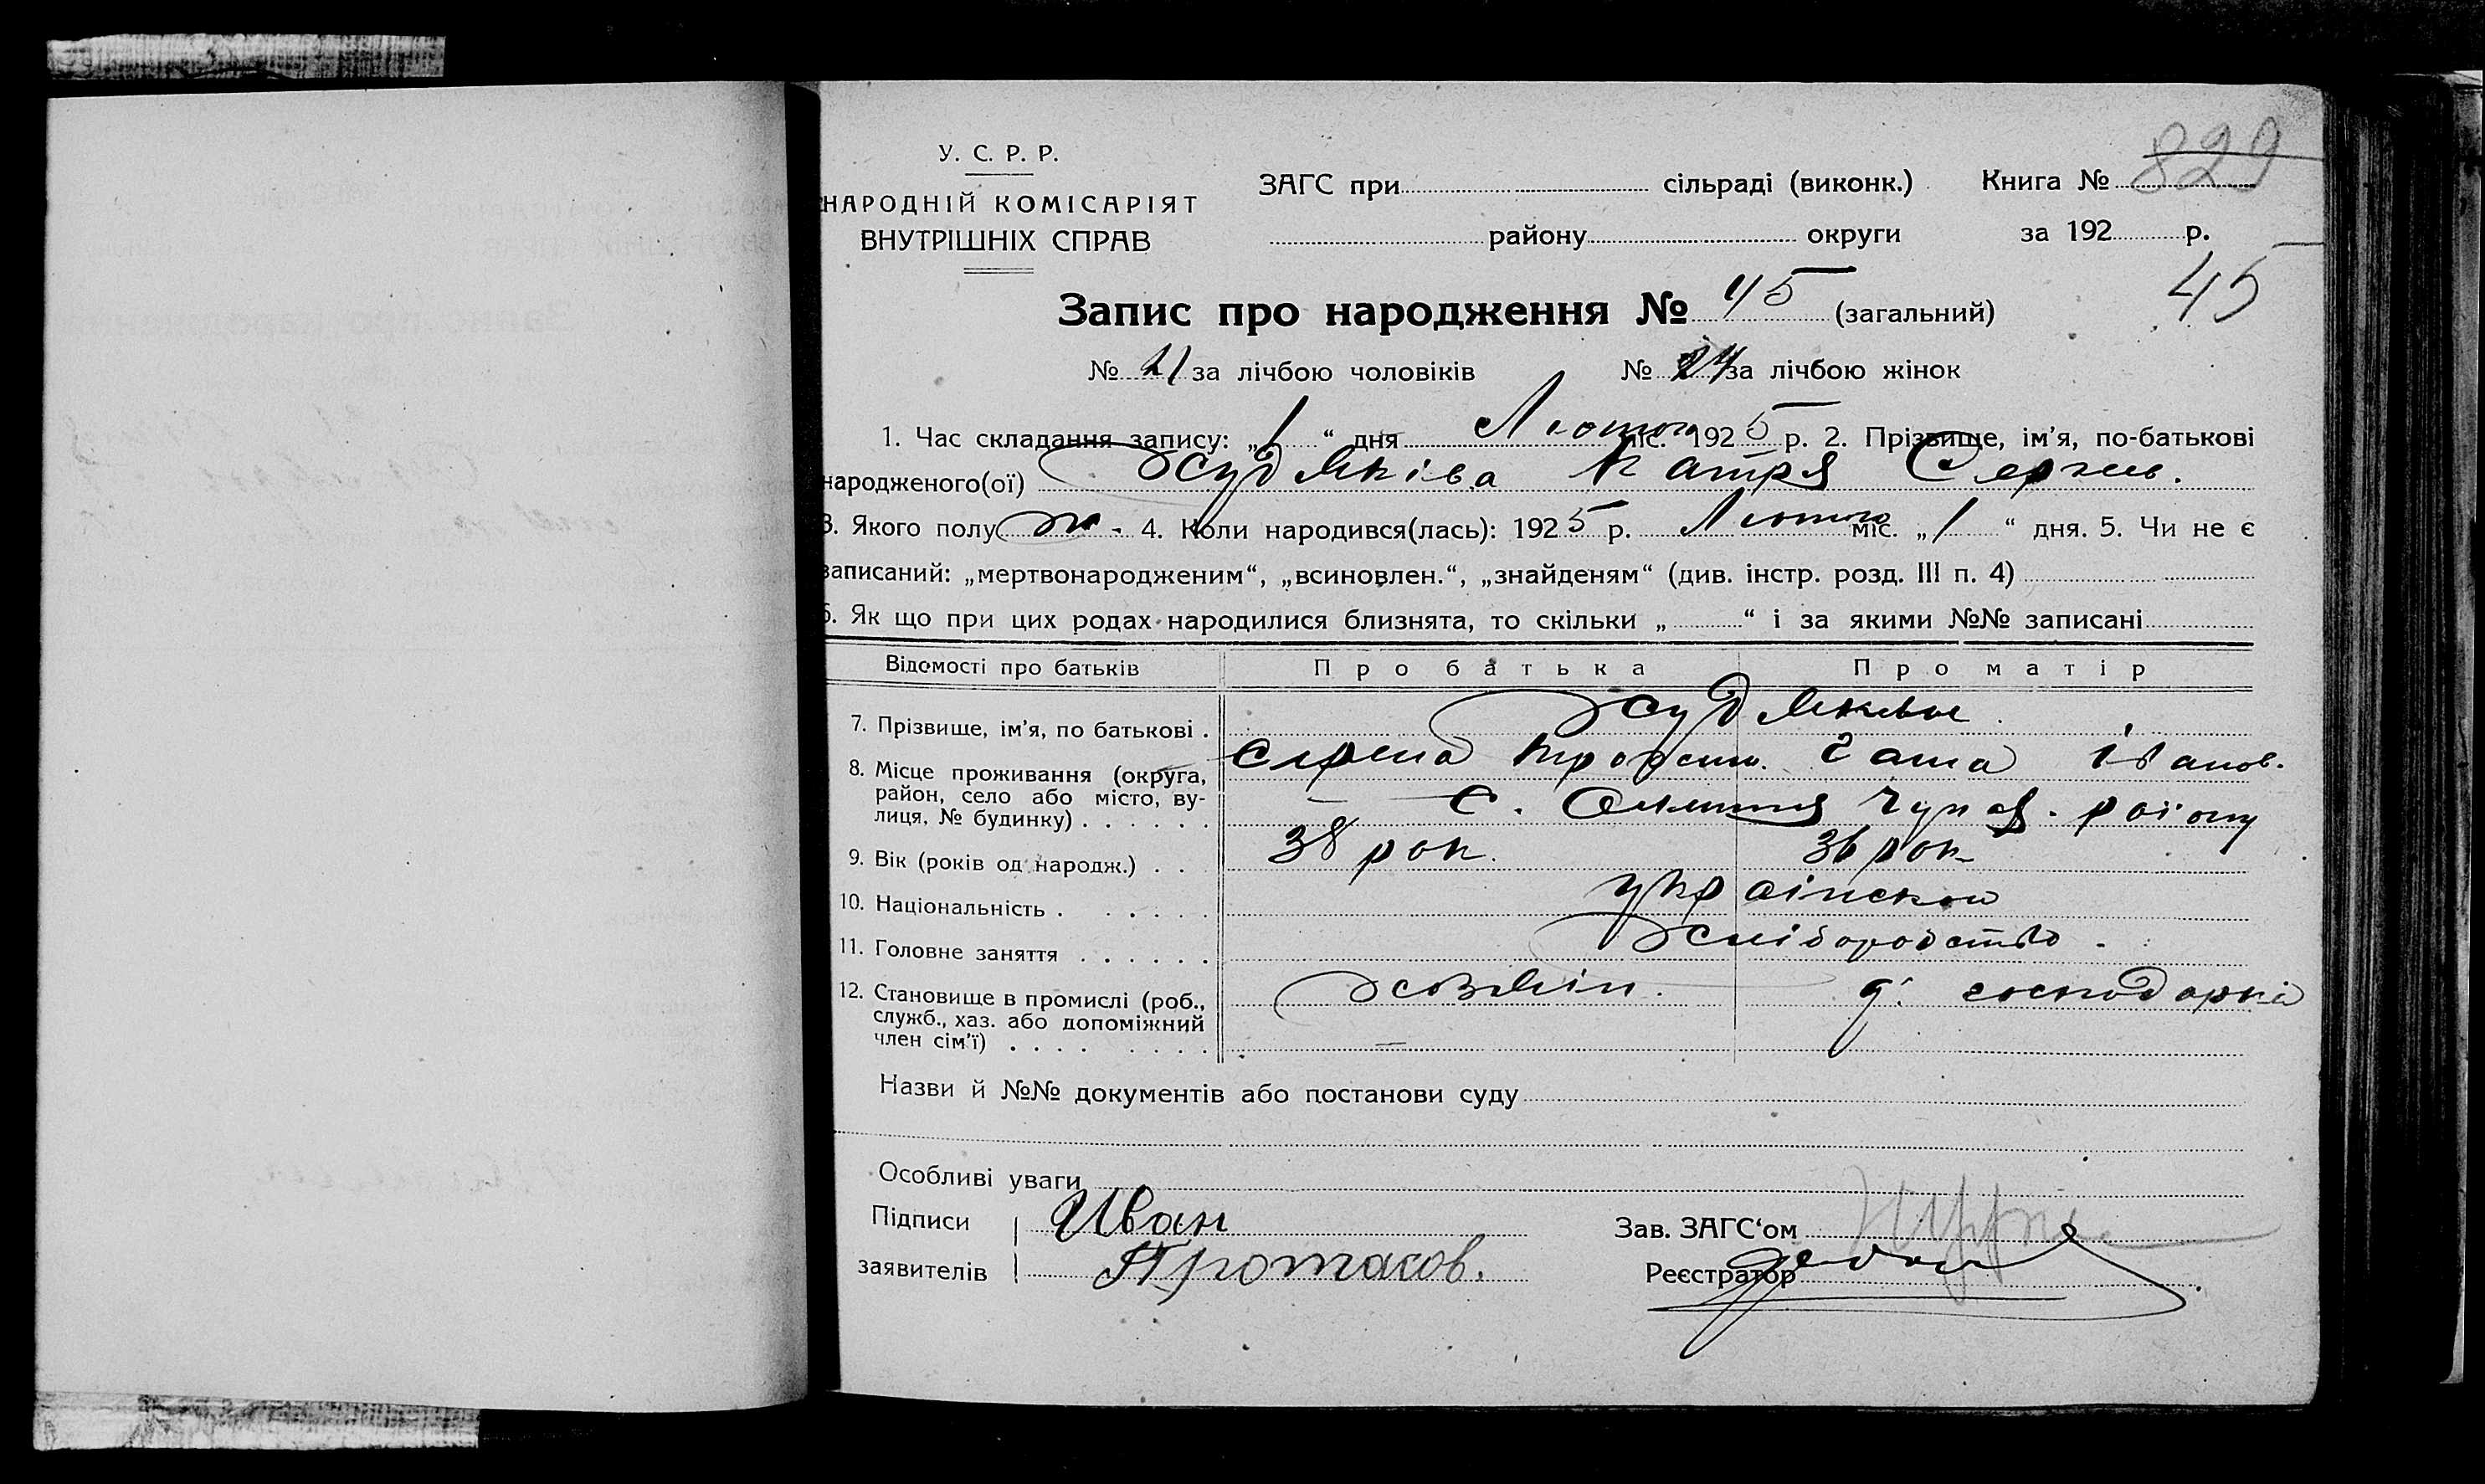 829
У. С. Р. Р.
НАРОДНІЙ КОМІСАРІЯТ
ВНУТРІШНІХ СПРАВ
ЗАГС при сільраді (виконк.) Книга №
району округи за 192 р.
45
Запис про народження № 45 (загальний)
№ 21 за лічбою чоловіків № 24 за лічбою жінок
1. Час складання запису: „1“ дня Лютого міс. 1925 р. 2. Прізвище, ім'я, по-батькові
народженого(ої) Худяківа Катря Сергіев.
3. Якого полу ж. 4. Коли народився(лась): 1925 р. Лютого міс. „1“ дня. 5. Чи не є
записаний: „мертвонародженим“, „всиновлен.“, „знайденям“ (див. інстр. розд. III п. 4)
6. Як що при цих родах народилися близнята, то скільки „ “ і за якими №№ записані
Відомості про батьків Про батька Про матір
7. Прізвище, ім'я, по батькові . Худякови
Сергій Ганна Іванов.
8. Місце проживання (округа,
район, село або місто, ву-
лиця, № будинку) . . . . . . с. району
9. Вік (років од народж.) . . 38 рок. 36 рок
10. Національність . . . . . українською
11. Головне заняття . . . . . . Хліборобство.
12. Становище в промислі (роб.,
служб., хаз. або допоміжний
член сім'ї) . . . . . . . . Хозяїн. д. господарка
Назви й №№ документів або постанови суду
Особливі уваги
Підписи Иван Зав. ЗАГС‘ом
заявителів Протасов. Реєстратор